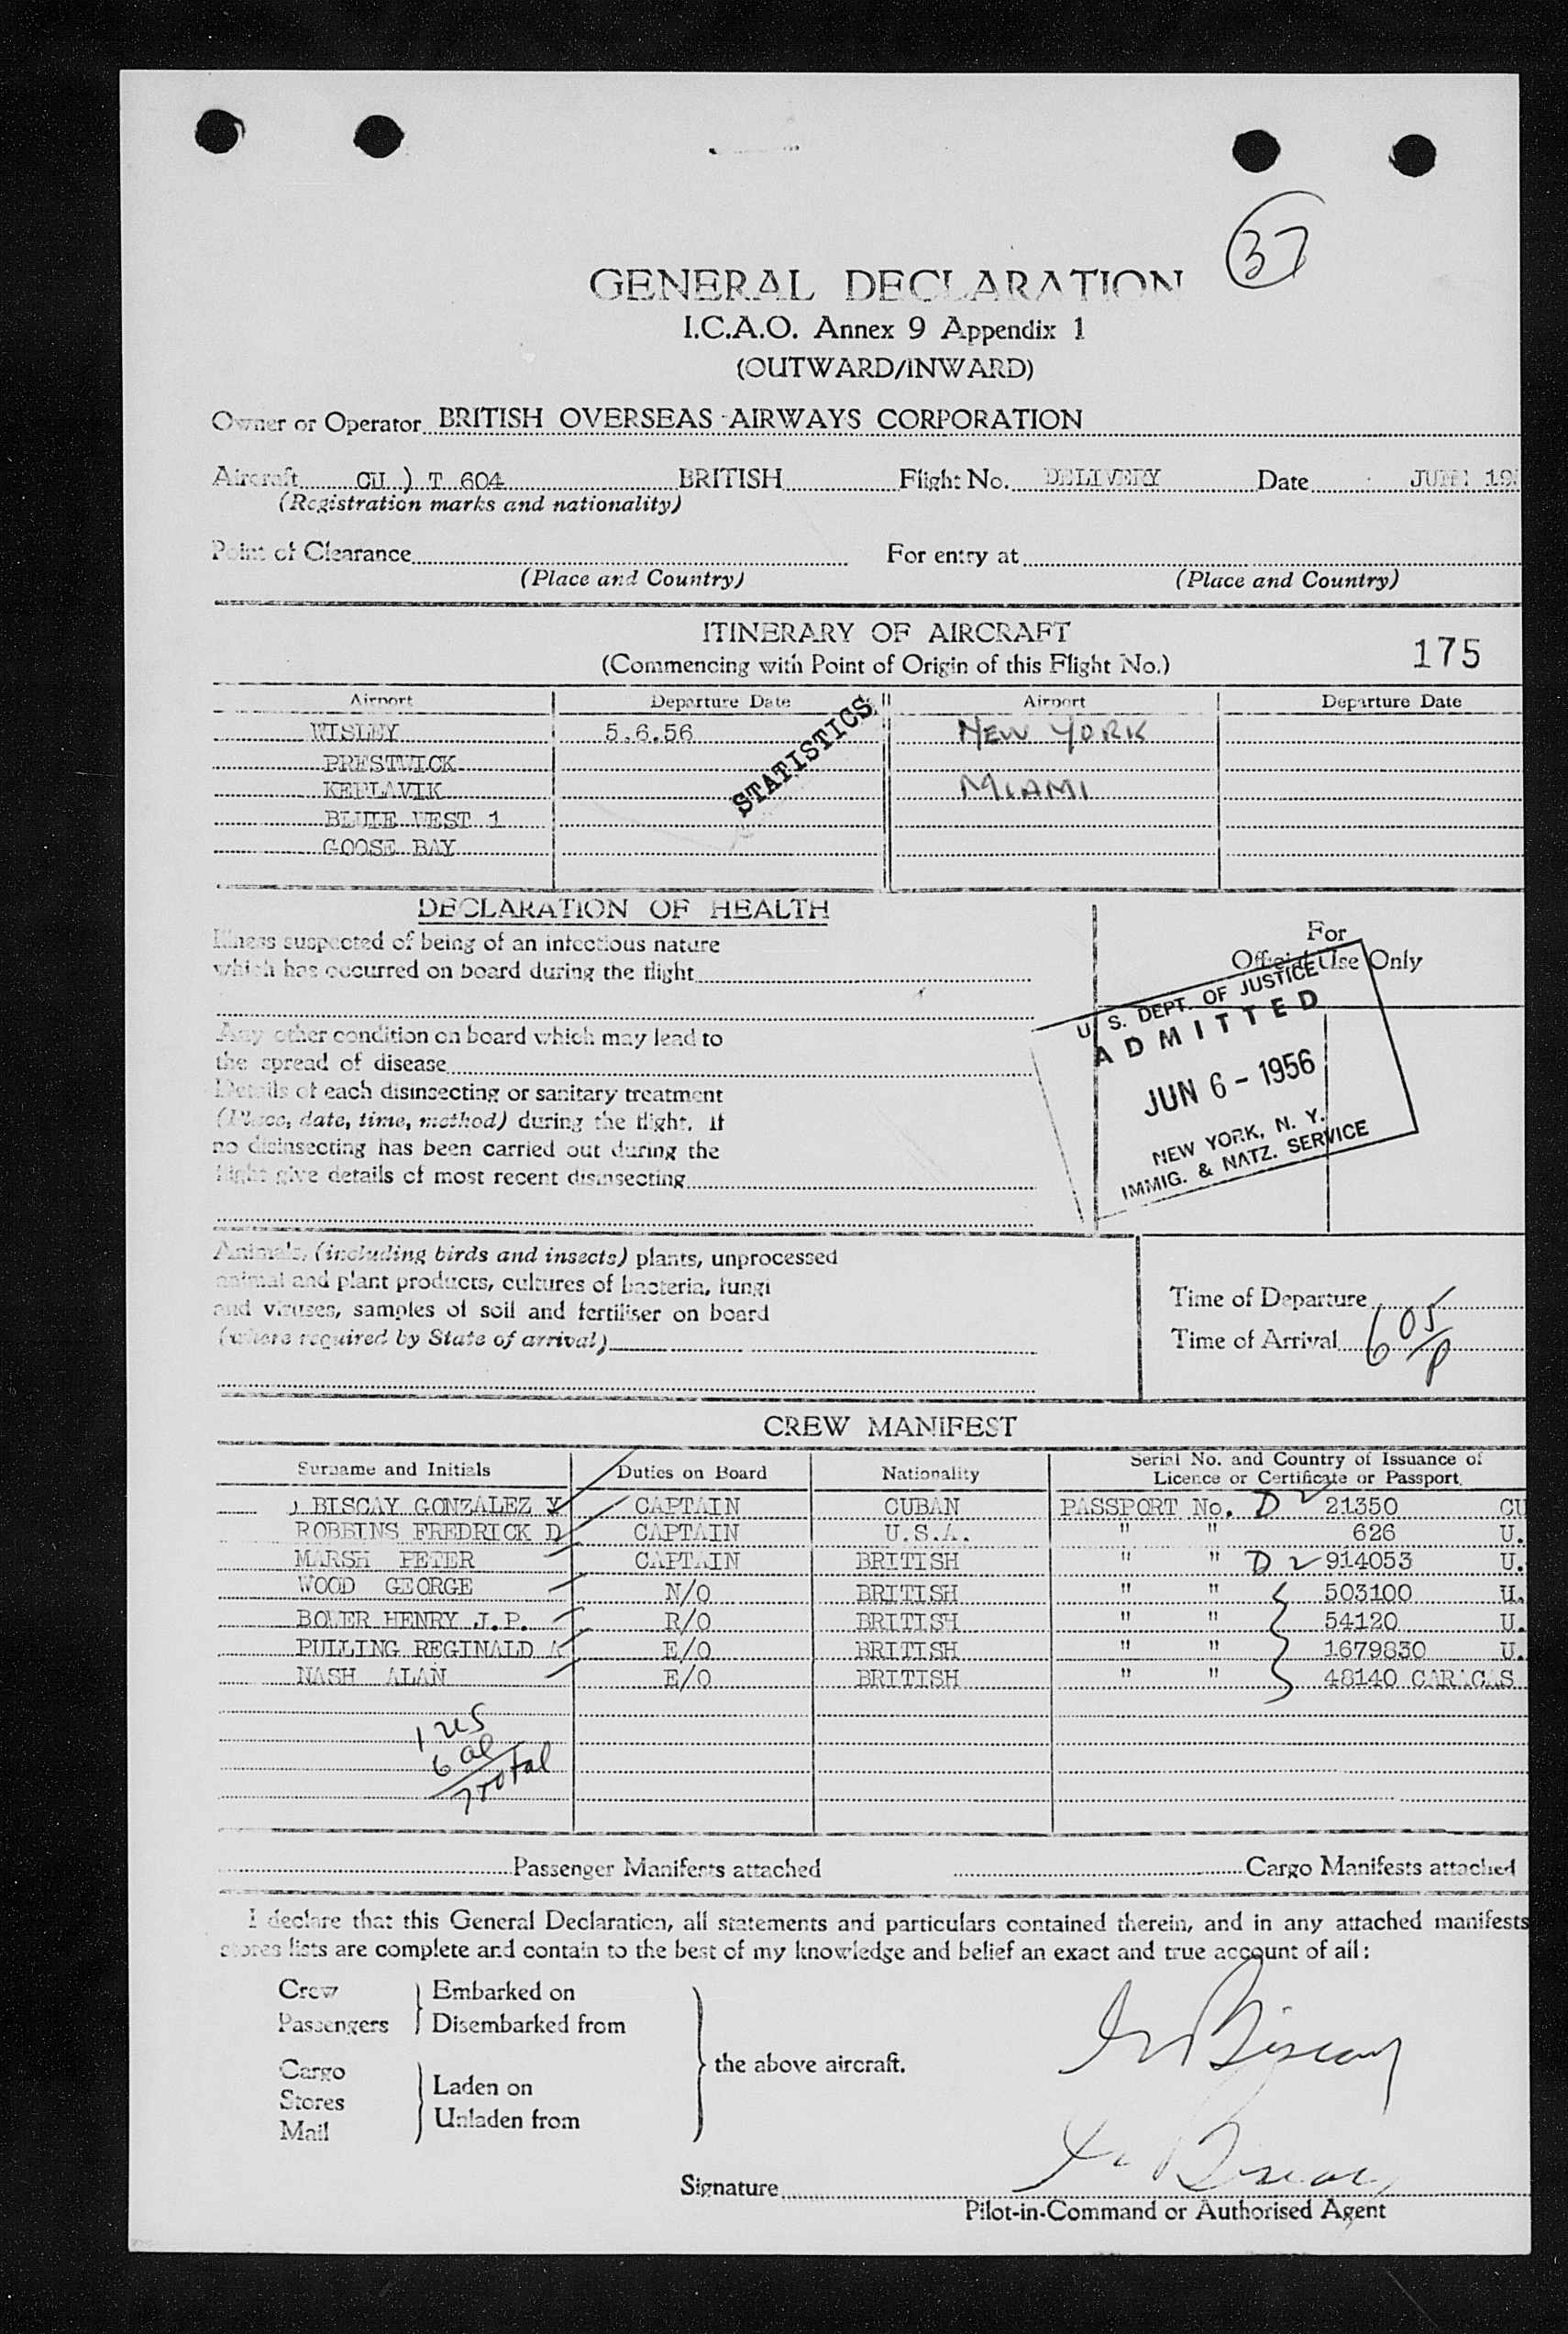 37
GENERAL DECLARATION
I.C.A.O. Annex 9 Appendix 1
(OUTWARD/INWARD)
Owner or Operator BRITISH OVERSEAS AIRWAYS CORPORATION
Aircraft CU ) T 604 BRITISH Flight No. DELIVERY Date JUNE 19
(Registration marks and nationality)
Point of Clearance For entry at
(Place and Country) (Place and Country)
ITINERARY OF AIRCRAFT
(Commencing with Point of Origin of this Flight No.) 175
Airport Departure Date Airport Departure Date
WISLEY 5.6.56 NEW YORK
PRESTWICK
KEFLAVIK MIAMI
BLUIE WEST 1
GOOSE BAY
STATISTICS
DECLARATION OF HEALTH
Illness suspected of being of an infectious nature
which has occurred on board during the flight
Any other condition on board which may lead to
the spread of disease
Details of each disinsecting or sanitary treatment
(Place, date, time, method) during the flight. If
no disinsecting has been carried out during the
flight give details of most recent disinsecting
For
Official Use Only
U. S. DEPT. OF JUSTICE
ADMITTED
JUN 6 - 1956
NEW YORK, N. Y.
IMMIG. & NATZ. SERVICE
Animals, (including birds and insects) plants, unprocessed
animal and plant products, cultures of bacteria, fungi
and viruses, samples of soil and fertiliser on board
(where required by State of arrival)
Time of Departure
Time of Arrival 605/p
CREW MANIFEST
Surname and Initials Duties on Board Nationality Serial No. and Country of Issuance of
Licence or Certificate or Passport.
BISCAY GONZALEZ Y CAPTAIN CUBAN PASSPORT No. D2 21350 CU
ROBBINS FREDRICK D CAPTAIN U.S.A. " " 626 U.
MARSH PETER CAPTAIN BRITISH " " D2 914053 U.
WOOD GEORGE N/O BRITISH " " 503100 U.
BOWER HENRY J.P. R/O BRITISH " " 54120 U.
PULLING REGINALD A E/O BRITISH " " 1679830 U.
NASH ALAN E/O BRITISH " " 48140 CARACAS
1 us
6 al
7 total
Passenger Manifests attached Cargo Manifests attached
I declare that this General Declaration, all statements and particulars contained therein, and in any attached manifests
stores lists are complete and contain to the best of my knowledge and belief an exact and true account of all:
Crew Embarked on
Passengers Disembarked from
the above aircraft.
Cargo
Laden on
Stores
Unladen from
Mail
Biscay
Signature Biscay
Pilot-in-Command or Authorised Agent